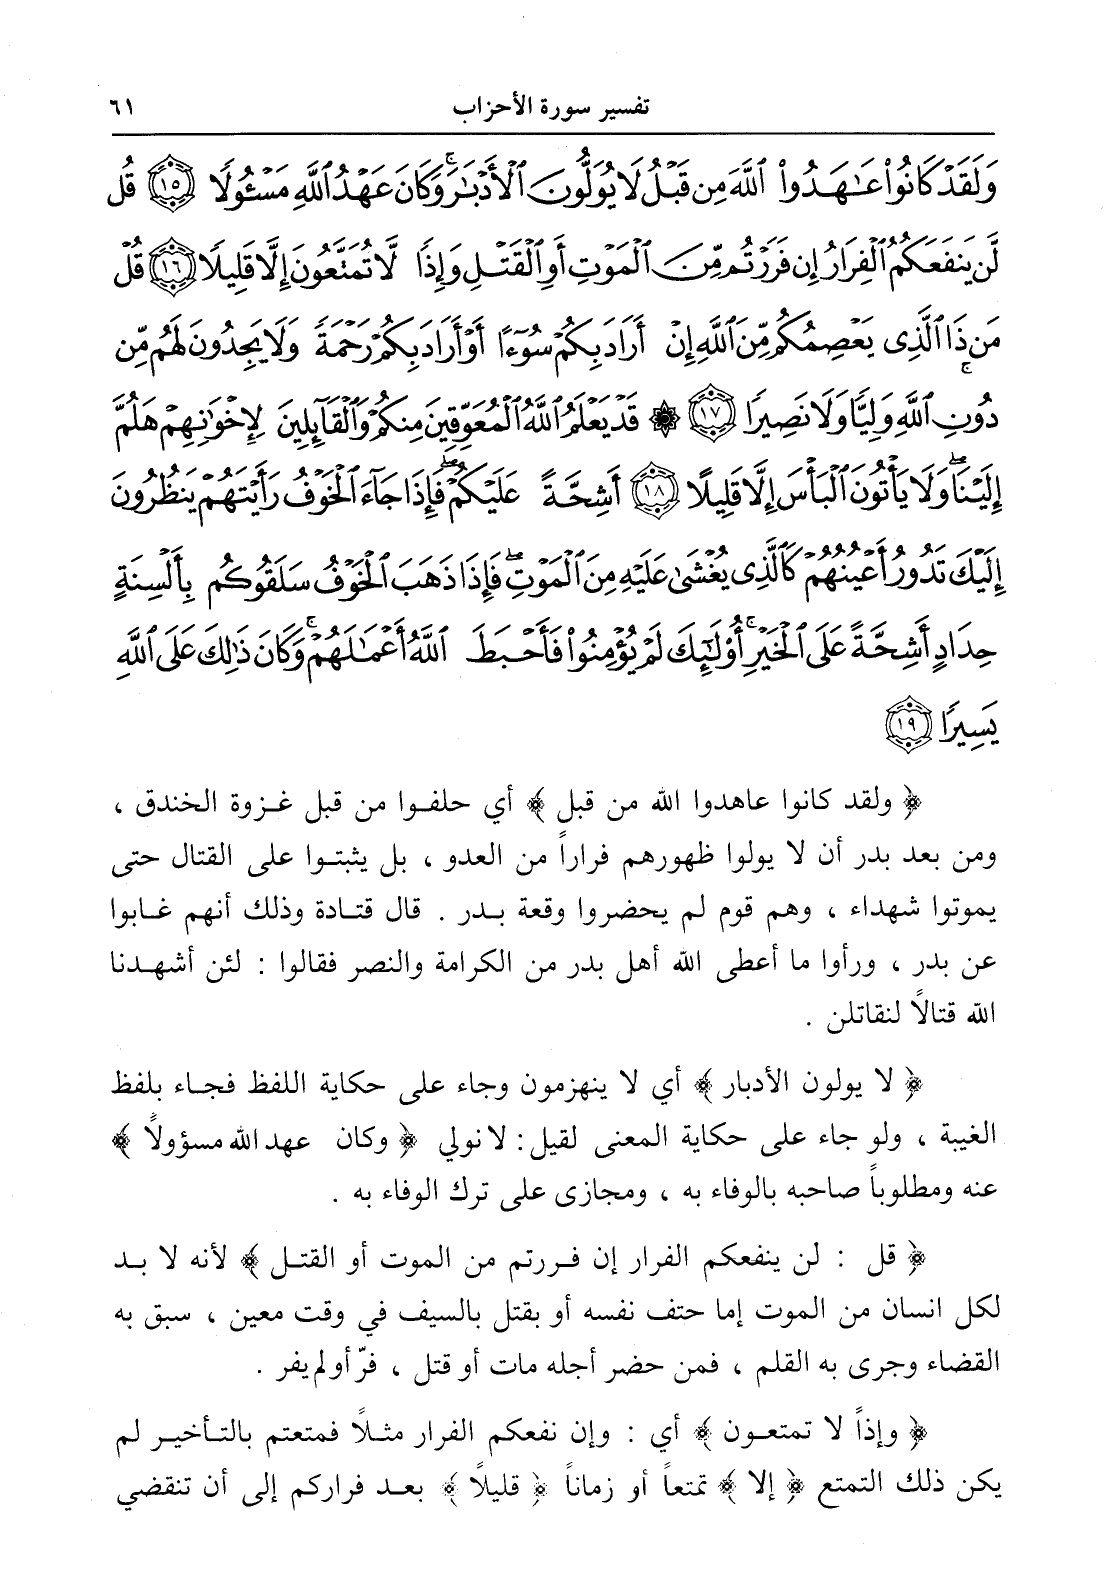 تفسير سورة الأحزاب ٦١
وَلَقَدْ كَانُوا۟ عَـٰهَدُوا۟ ٱللَّهَ مِن قَبْلُ لَا يُوَلُّونَ ٱلْأَدْبَـٰرَ ۚ وَكَانَ عَهْدُ ٱللَّهِ مَسْـُٔولًا ١٥ قُل
لَّن يَنفَعَكُمُ ٱلْفِرَارُ إِن فَرَرْتُم مِّنَ ٱلْمَوْتِ أَوِ ٱلْقَتْلِ وَإِذًا لَّا تُمَتَّعُونَ إِلَّا قَلِيلًا ١٦ قُلْ
مَن ذَا ٱلَّذِى يَعْصِمُكُم مِّنَ ٱللَّهِ إِنْ أَرَادَ بِكُمْ سُوٓءًا أَوْ أَرَادَ بِكُمْ رَحْمَةً ۚ وَلَا يَجِدُونَ لَهُم مِّن
دُونِ ٱللَّهِ وَلِيًّا وَلَا نَصِيرًا ١٧ ۞ قَدْ يَعْلَمُ ٱللَّهُ ٱلْمُعَوِّقِينَ مِنكُمْ وَٱلْقَآئِلِينَ لِإِخْوَٰنِهِمْ هَلُمَّ
إِلَيْنَا ۖ وَلَا يَأْتُونَ ٱلْبَأْسَ إِلَّا قَلِيلًا ١٨ أَشِحَّةً عَلَيْكُمْ ۖ فَإِذَا جَآءَ ٱلْخَوْفُ رَأَيْتَهُمْ يَنظُرُونَ
إِلَيْكَ تَدُورُ أَعْيُنُهُمْ كَٱلَّذِى يُغْشَىٰ عَلَيْهِ مِنَ ٱلْمَوْتِ ۖ فَإِذَا ذَهَبَ ٱلْخَوْفُ سَلَقُوكُم بِأَلْسِنَةٍ
حِدَادٍ أَشِحَّةً عَلَى ٱلْخَيْرِ ۚ أُو۟لَـٰٓئِكَ لَمْ يُؤْمِنُوا۟ فَأَحْبَطَ ٱللَّهُ أَعْمَـٰلَهُمْ ۚ وَكَانَ ذَٰلِكَ عَلَى ٱللَّهِ
يَسِيرًا ١٩
﴿ ولقد كانوا عاهدوا الله من قبل ﴾ أي حلفوا من قبل غزوة الخندق ،
ومن بعد بدر أن لا يولوا ظهورهم فراراً من العدو ، بل يثبتوا على القتال حتى
يموتوا شهداء ، وهم قوم لم يحضروا وقعة بدر . قال قتادة وذلك أنهم غابوا
عن بدر ، ورأوا ما أعطى الله أهل بدر من الكرامة والنصر فقالوا : لئن أشهدنا
الله قتالاً لنقاتلن .
﴿ لا يولون الأدبار ﴾ أي لا ينهزمون وجاء على حكاية اللفظ فجاء بلفظ
الغيبة ، ولو جاء على حكاية المعنى لقيل : لا نولي ﴿ وكان عهد الله مسؤولاً ﴾
عنه ومطلوباً صاحبه بالوفاء به ، ومجازى على ترك الوفاء به .
﴿ قل : لن ينفعكم الفرار إن فررتم من الموت أو القتل ﴾ لأنه لا بد
لكل انسان من الموت إما حتف نفسه أو بقتل بالسيف في وقت معين ، سبق به
القضاء وجرى به القلم ، فمن حضر أجله مات أو قتل ، فرّ أو لم يفر .
﴿ وإذاً لا تمتعون ﴾ أي : وإن نفعكم الفرار مثلاً فمتعتم بالتأخير لم
يكن ذلك التمتع ﴿ إلا ﴾ تمتعاً أو زماناً ﴿ قليلاً ﴾ بعد فراركم إلى أن تنقضي